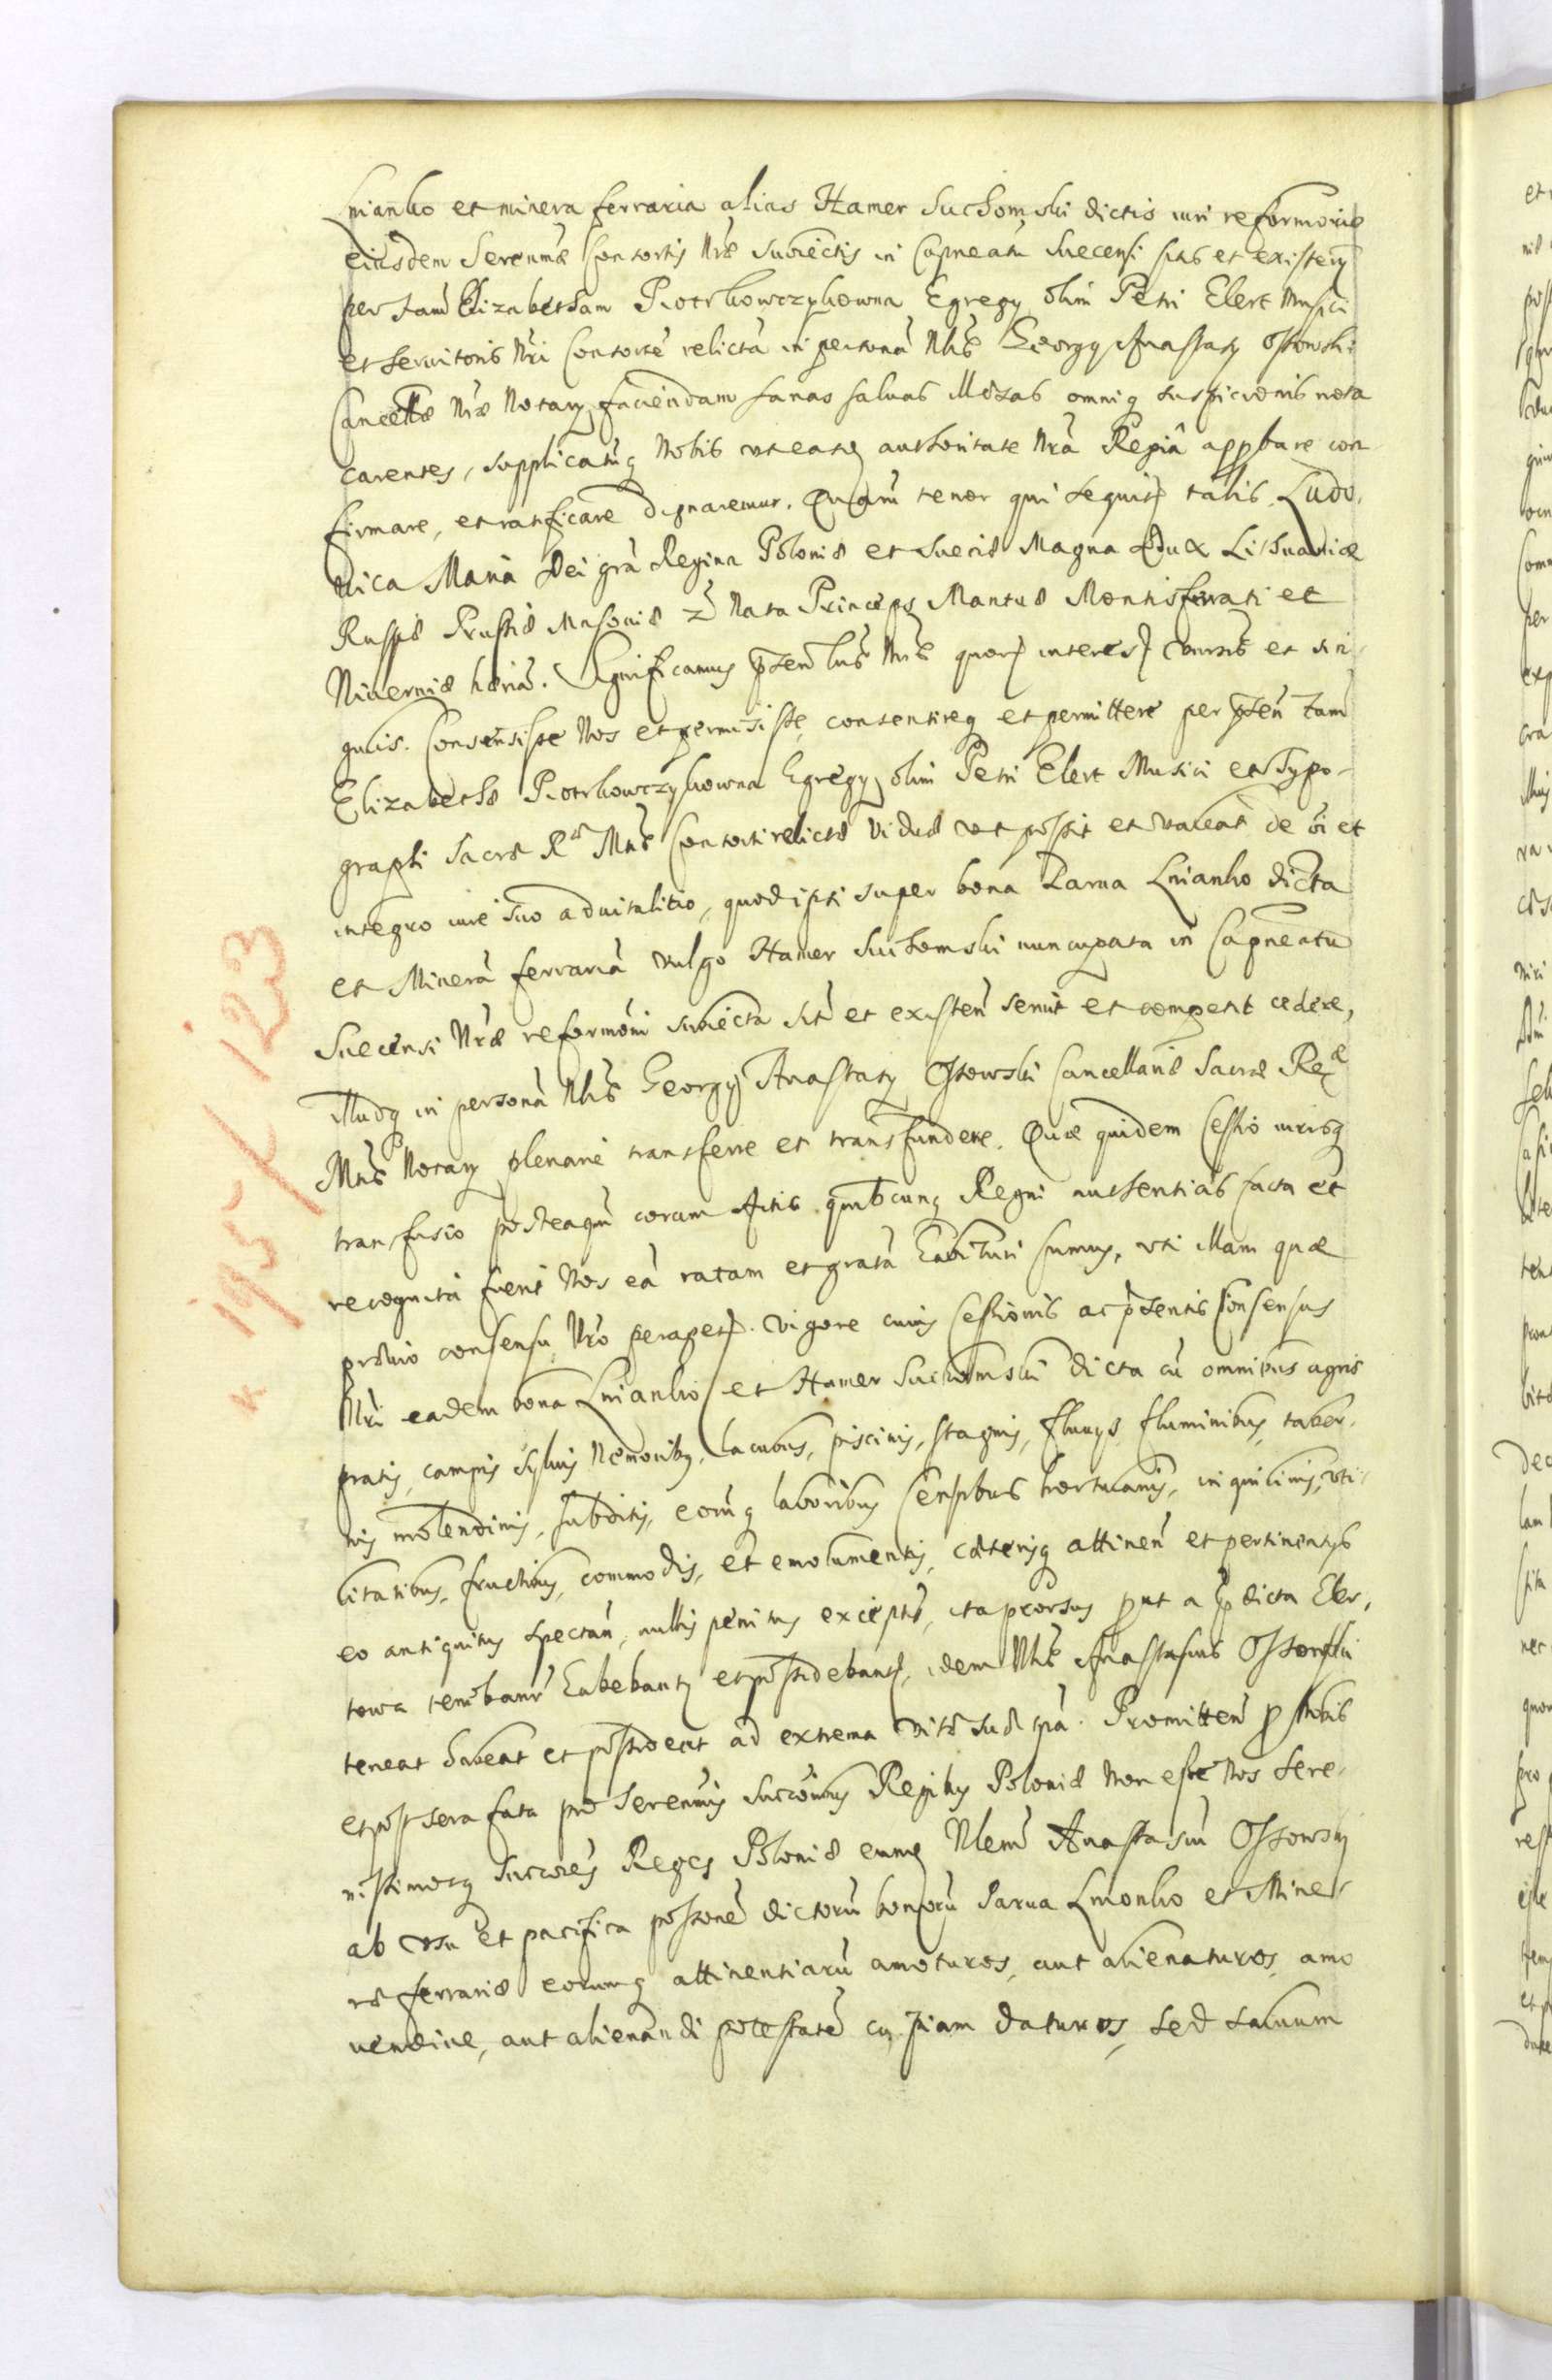 Lnianko et minera ferraria alias Hamer Suchomski dictis iuri reformoris
eiusdem Serenmæ Consortis Nræ subiectis in Capneatu Suecensi sitis et existen
per fam Elizabetham Piotrkowczykowna Egregy olim Petri Elert Musici
et Servitoris Nri Consorte relictã in personã Nlis Georgy Anastasy Ossowski
Cancellæ Nræ Notary faciendam sanas salvas illæsas omniq suspicionis nota
carentes, supplicatuq Nobis ut eas authoritate Nrâ Regiâ approbare con
firmare, et ratificare dignaremur. Quarũ tenor qui sequitr talis. Ludo,
vica Maria Dei grã Regina Poloniæ et Sueciæ Magna Dux Lithuaniæ
Russiæ Prussiæ Masoviæ Nata Princeps Mantuæ Montisferrati et
Niverniæ Significamus pñtibus Nris quorũ interest univrsis et sin
gulis. Consensisse Nos et permisisse, consentireq et permittere per pñtes fam
Elizabethæ Piotrkowczykowna Egregy olim Petri Elert Musici et Typo-
graphi Sacræ Ræ Mtis Consorti relictæ Viduæ ut possit et valeat de toto et
integro iure suo advitalitio, quod ipsi super bona Parua Lnianko dicta
et Minerã ferrariã vulgo Hamer Suchomski nuncupata in Capneatu
Suecensi Nræ reformõni subiecta sita et existen servit et competit cedere,
Illudq in personã Nlis Georgy Anastasy Ossowski Cancellariæ Sacræ Ræ
Mtis Notary plenarie transferre et transfundere. Quæ quidem Cessio iurisq
transfusio posteaquã coram Actis quibuscunq Regni authenticis facta et
recognita fuerit Nos eã ratam et gratã habituri sumus, uti illam quæ
prævio consensu Nro peragetr. Vigore cuius Cessionis ac præsentis Consensus
Nri eadem bona Lnianko et Hamer Suchomski dicta cũ omnibus agris
pratis, campis sylvis Nemoribus, lacubus, piscinis, stagnis, fluvys fluminibus, taber,
nis molendinis, subditis, eorũq laboribus Censibus hortulanis, inquilinis, uti
litatibus, fructibus, commodis, et emolumentis, cæterisq attinen et pertinentys
eo antiquitus spectan, nullis penitus exceptis, ita prorsus prout a prædicta Eler,
towa tenebantr habebantr et possidebantr, idem Nlis Anastasius Ossowski
teneat habeat et possideat ad extrema vitæ suæ tpa. Promitten pro Nobis
et post sera fata pro Serenmis Succoribus Regibus Poloniæ Non esse Nos Sere-
nissimosq Succores Reges Poloniæ eunq Nlem Anastasiũ Ossowsky
ab usu et pacifica possone dictorũ bonorũ Parua Lnionko et Mine-
ræ ferrariæ eorumq attinentiarũ amoturos, aut alienaturos, amo
vendive, aut alienandi potestatẽ cuipiam daturos, sed salvum
* 195/123